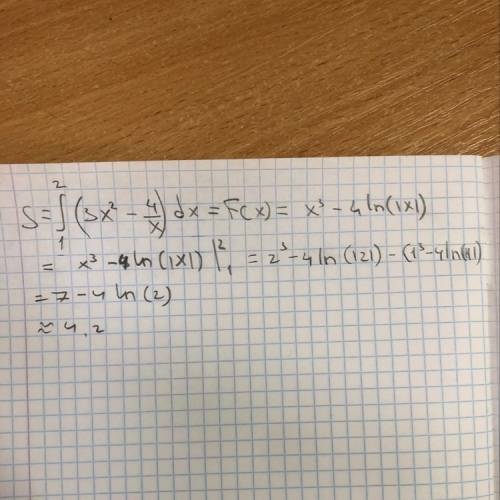 S = ∫₁² (3x² - 4/x) dx = F(x) = x³ - 4 ln(|x|)
= x³ - 4 ln(|x|) |₁² = 2³ - 4 ln(|2|) - (1³ - 4 ln(|1|)
= 7 - 4 ln(2)
≈ 4.2